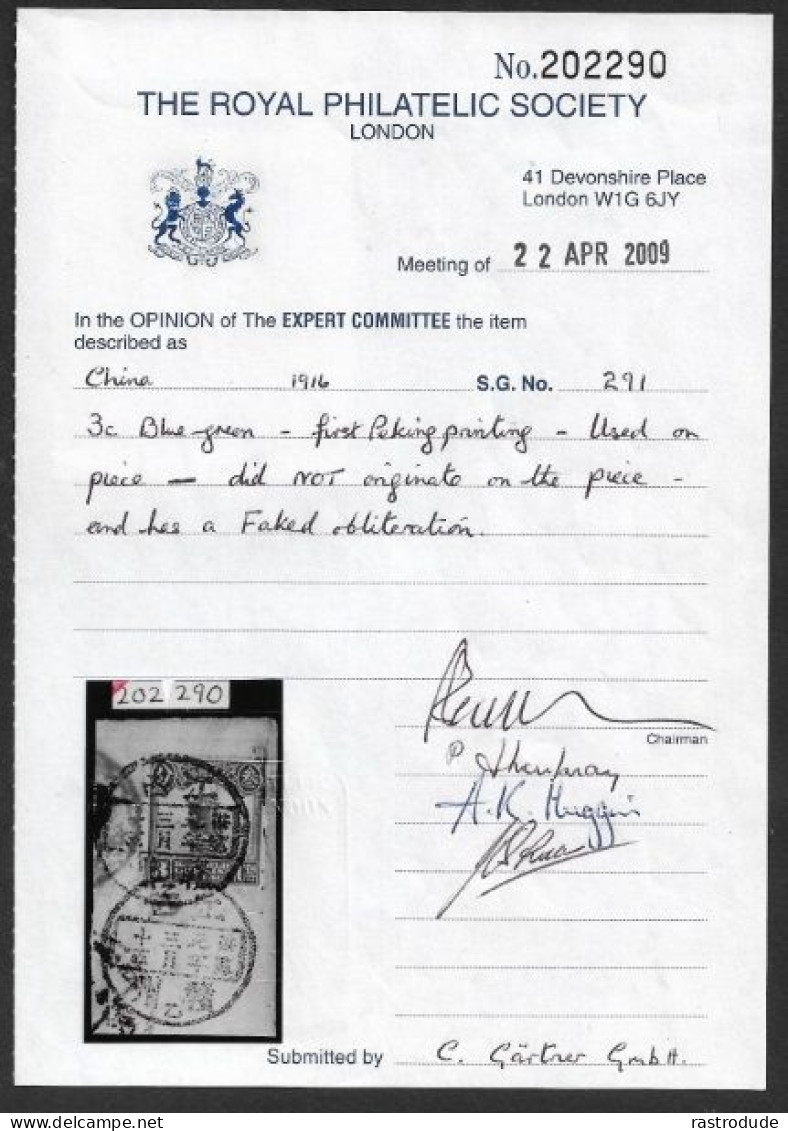 No.202290
THE ROYAL PHILATELIC SOCIETY
LONDON
41 Devonshire Place
London W1G 6JY
Meeting of 22 APR 2009
In the OPINION of The EXPERT COMMITTEE the item
described as
China 1916 S.G. No. 291
3c Blue-green - first Peking printing - Used on
piece - did NOT originate on the piece -
and has a Faked obliteration.
202 290
Chairman
A.K. Huggins
Submitted by C. Gärtner GmbH.
rastrodude